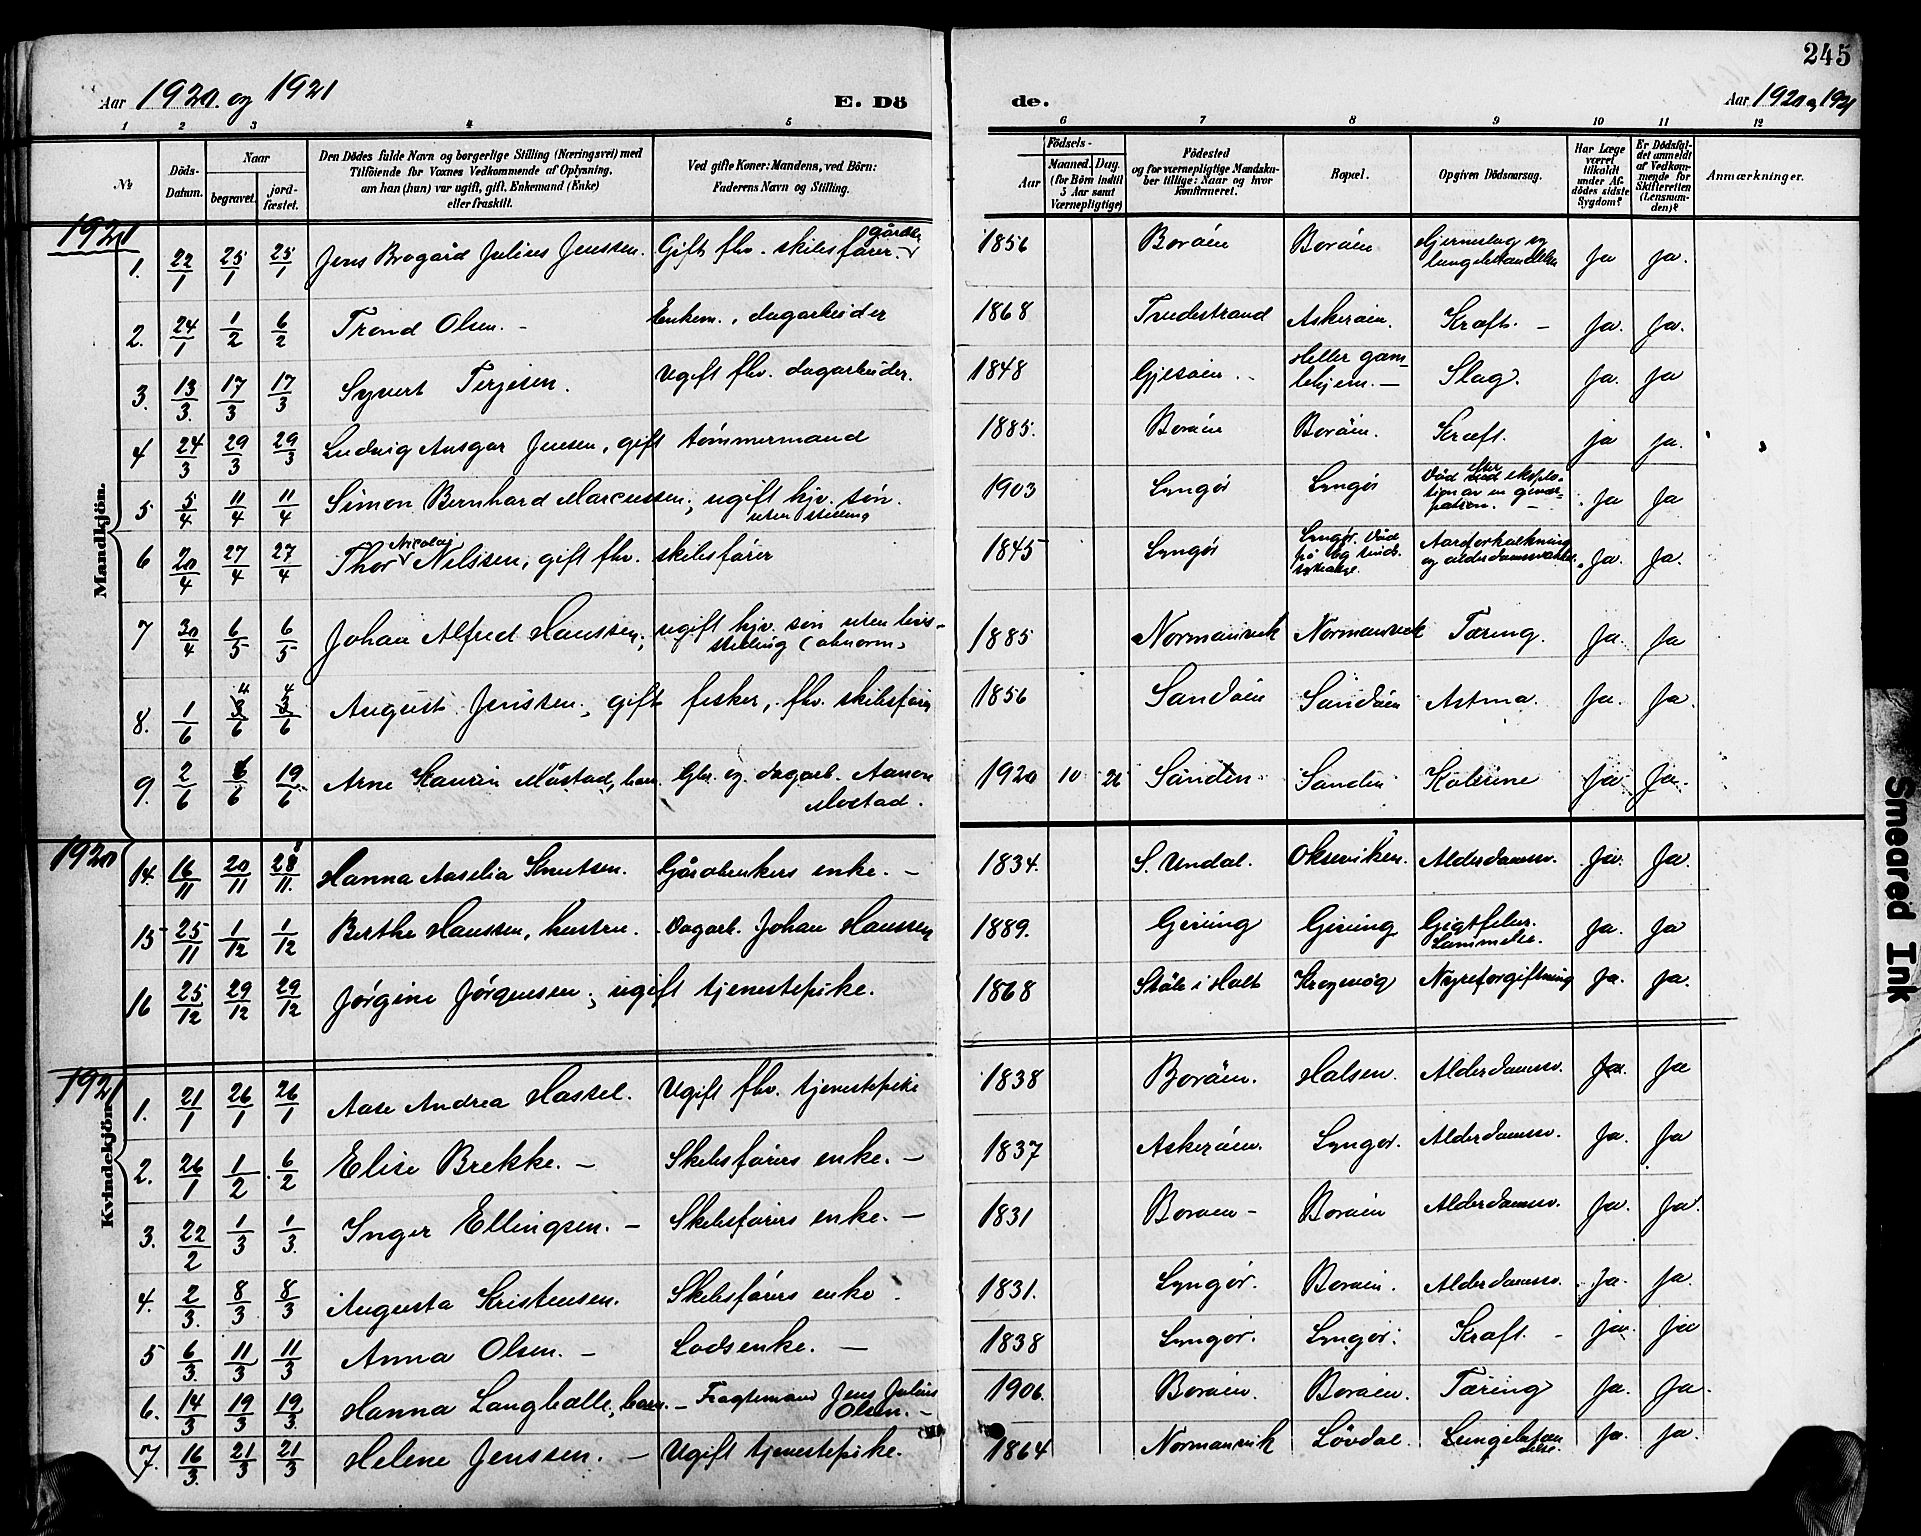 245
Aar 1920 og 1921 E. Dö de. Aar 1920 og 1921
1 2 3 4 5 6 7 8 9 10 11 12
№ Döds-Datum. Naar begravet. jordfæstet. Den Dödes fulde Navn og borgerlige Stilling (Næringsvei) med Tilföiende for Voxnes Vedkommende af Oplysning, om han (hun) var ugift, gift, Enkemand (Enke) eller fraskilt. Ved gifte Koner: Mandens, ved Börn: Faderens Navn og Stilling. Födsels- Aar Maaned. Dag. (for Börn indtil 5 Aar samt Værnepligtige) Födested og for værnepligtige Mandskaber tillige: Naar og hvor Konfirmeret. Bopæl. Opgiven Dödsaarsag. Har Læge været tilkaldt under Afdödes sidste Sygdom? Er Dödsfaldet anmeldt af Vedkommende for Skifteretten (Lensmanden)? Anmærkninger.
1921
Mandkjön.
1. 22/1 25/1 25/1 Jens Brogård Julius Jenssen. Gift fhv. skibsfører. 1856 Borøen Borøen Hjerneslag og Ja Ja.
2. 24/1 1/2 6/2 Trond Olsen. – Enkem., dagarbeider 1868 Tvedestrand Askerøen. Kræft. – Ja. Ja.
3. 13/3. 17/3 17/3 Syvert Terjesen. Ugift fhv. dagarbeider. 1848 Gjesøen. Heller gamlehjem. – Slag. Ja. Ja
4 24/3 29/3 29/3 Ludvig Ansgar Jensen, gift tømmermand 1885. Borøen Borøen. Kræft. ja ja.
5 5/4 11/4 11/4 Simon Bernhard Marcussen, ugift hjv. søn. uten stilling 1903 Lyngør Lyngør Død efter eksplosion av en gevær patron. – Ja Ja
6 20/4 27/4 27/4 Thor Nicolai Nilssen, gift fhv. skibsfører 1845 Lyngør Lyngør. Død på og sinds. Aareforkalkning og Ja. Ja.
7 30/4 6/5 6/5 Johan Alfred Hanssen, ugift hjv. søn uten livsstilling (abnorm) 1885 Normansvik Normansvik Tæring. Ja. Ja
8. 1/6 4/6 4/6 August Jenssen, gift fisker, fhv. skibsfører 1856 Sandøen Sandøen Astma. Ja. Ja.
9. 2/6 6/6 19/6 Arne Kaurin Mostad, barn. Gbr. og dagarb. Aanon Mostad. 1920 10 26 Sanden Sanden Kolerine Ja. Ja.
1920
14. 16/11 20/11 28/11. Hanna Aaselia Knutsen. Gårdbrukers enke. – 1834. S. Undal. Okseviken. Alderdomssv. Ja. Ja.
15 25/11 1/12 1/12 Berthe Hanssen, hustru. Dagarb. Johan Hanssen 1889. Geving Geving Gigtfeber. Ja. Ja
16 25/12 29/12 29/12 Jørgine Jørgensen, ugift tjenestepike. 1868 Ståle i Holt Nyreforgiftning Ja. Ja.
1921
Kvindekjön.
1. 21/1 26/1 26/1 Aase Andrea Hassel. Ugift fhv. tjenestepike 1838 Borøen. Halsen. Alderdomssv. Ja. Ja
2. 26/1 1/2 6/2 Elise Brekke. – Skibsførers enke. – 1837 Askerøen. Lyngør. Alderdomssv. Ja. Ja
3. 22/2 1/3 1/3. Inger Ellingsen. – Skibsførers enke. – 1831 Borøen – Borøen Alderdomssv. Ja. Ja.
4. 2/3. 8/3 8/3 Augusta Kristensen. Skibsførers enke. 1831. Lyngør. Borøen. Alderdomssv. Ja. Ja.
5 6/3. 11/3 11/3 Anna Olsen. – Lodsenke. – 1838 Lyngør. Lyngør. Kræft. – ja. Ja
6. 14/3 19/3 19/3. Hanna Langballe, barn. – Fragtemand Jens Julius Olsen. – 1906. Borøen. Borøen. Tæring Ja. Ja.
7. 16/3. 21/3 21/3 Helene Jenssen. – Ugift tjenestepike. 1864 Normansvik Løvdal. Lungebetændelse. Ja. Ja.
Smeared Ink